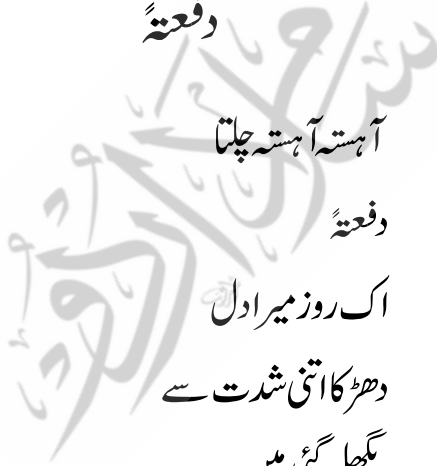 دفعتہً
آہستہ آہستہ چلتا
دفعتہً
اک روز میرا دل
دھڑکا اتنی شدت سے
پگھل گئی میں